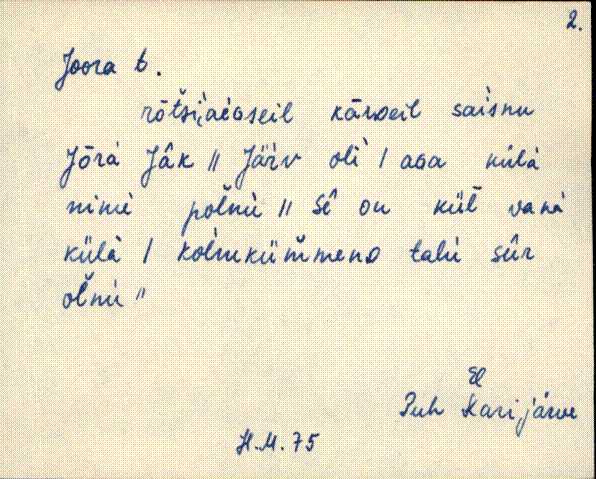 2.
Joora t.
rōt̆si̮aėɢseil kāʀᴅeil saìsnu
Jōrà Jâk // Järv olì / aɢa külà
nimè pol̆nù // sê on kül̆ vanà
külà / kolmküm̆menᴅ talù sûr
ol̆nù //
El
Puh Karijärve
H.M. 75